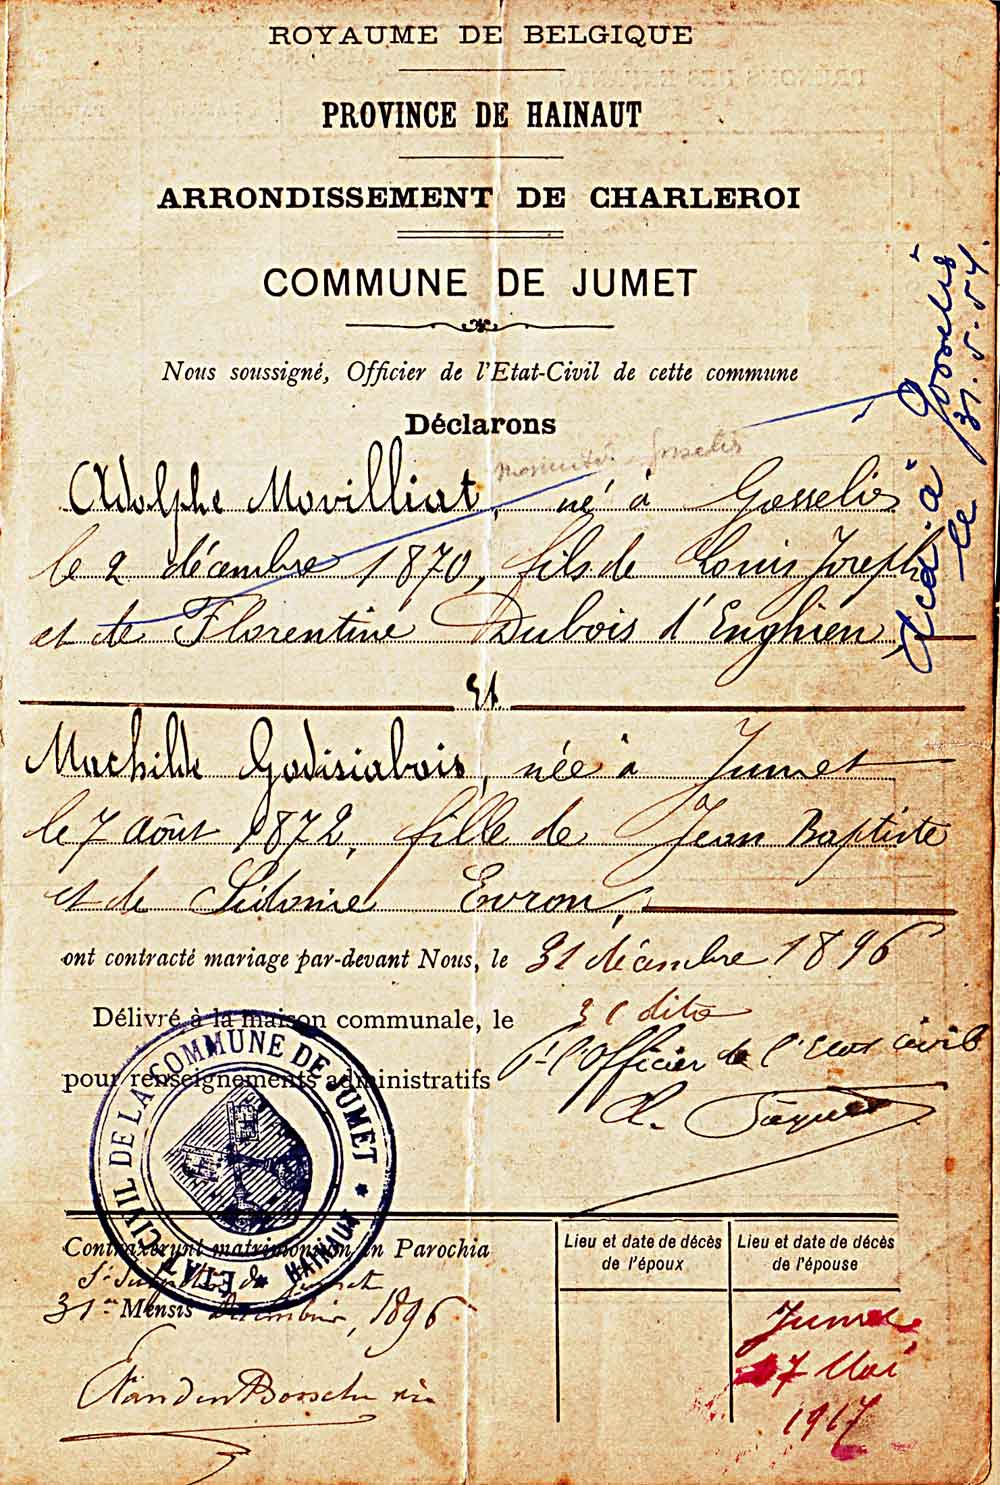 ROYAUME DE BELGIQUE
PROVINCE DE HAINAUT
ARRONDISSEMENT DE CHARLEROI
COMMUNE DE JUMET
Nous soussigné, Officier de l'Etat-Civil de cette commune
Déclarons
Adolphe Movilliat, né à Gosselies
le 2 décembre 1870, fils de Louis Joseph
et de Florentine Dubois d'Enghien,
Et
Mathilde Godisiabois, née à Jumet
le 7 Août 1872, fille de Jean Baptiste
et de Sidonie Evron,
ont contracté mariage par-devant Nous, le 31 décembre 1896
Délivré à la maison communale, le 31 dito
pour renseignements administratifs
Pr l'Officier de l'Etat civil
ETAT CIVIL DE LA COMMUNE DE JUMET * HAINAUT *
Contraxerunt matrimonium in Parochia
de Jumet
31 Mensis Decembris, 1896
Lieu et date de décès de l'époux
Lieu et date de décès de l'épouse
Jumet
17 Mai
1917
Dcd. à Gosselies
le 31.5.54.